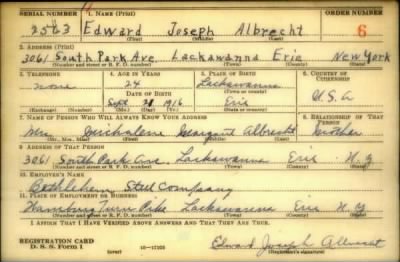 SERIAL NUMBER 1. NAME (Print) ORDER NUMBER
2563 Edward Joseph Albrecht 6
(First) (Middle) (Last)
2. ADDRESS (Print)
3061 South Park Ave. Lackawanna Erie New York
(Number and street or R. F. D. number) (Town) (County) (State)
3. TELEPHONE 4. AGE IN YEARS 5. PLACE OF BIRTH 6. COUNTRY OF CITIZENSHIP
none 24 Lackawanna
DATE OF BIRTH (Town or county)
Sept 28 1916 Erie U.S.A
(Exchange) (Number) (Mo.) (Day) (Yr.) (State or country)
7. NAME OF PERSON WHO WILL ALWAYS KNOW YOUR ADDRESS 8. RELATIONSHIP OF THAT PERSON
Mrs. Margaret Albrecht Mother
(Mr., Mrs., Miss) (First) (Middle) (Last)
9. ADDRESS OF THAT PERSON
3061 South Park Ave. Lackawanna Erie N.Y
(Number and street or R. F. D. number) (Town) (County) (State)
10. EMPLOYER'S NAME
Bethlehem Steel Company
11. PLACE OF EMPLOYMENT OR BUSINESS
Hamburg Turn Pike Lackawanna Erie N.Y
(Number and street or R. F. D. number) (Town) (County) (State)
I AFFIRM THAT I HAVE VERIFIED ABOVE ANSWERS AND THAT THEY ARE TRUE.
REGISTRATION CARD
D. S. S. Form 1 (over) 16-17105 Edward Joseph Albrecht
(Registrant's signature)